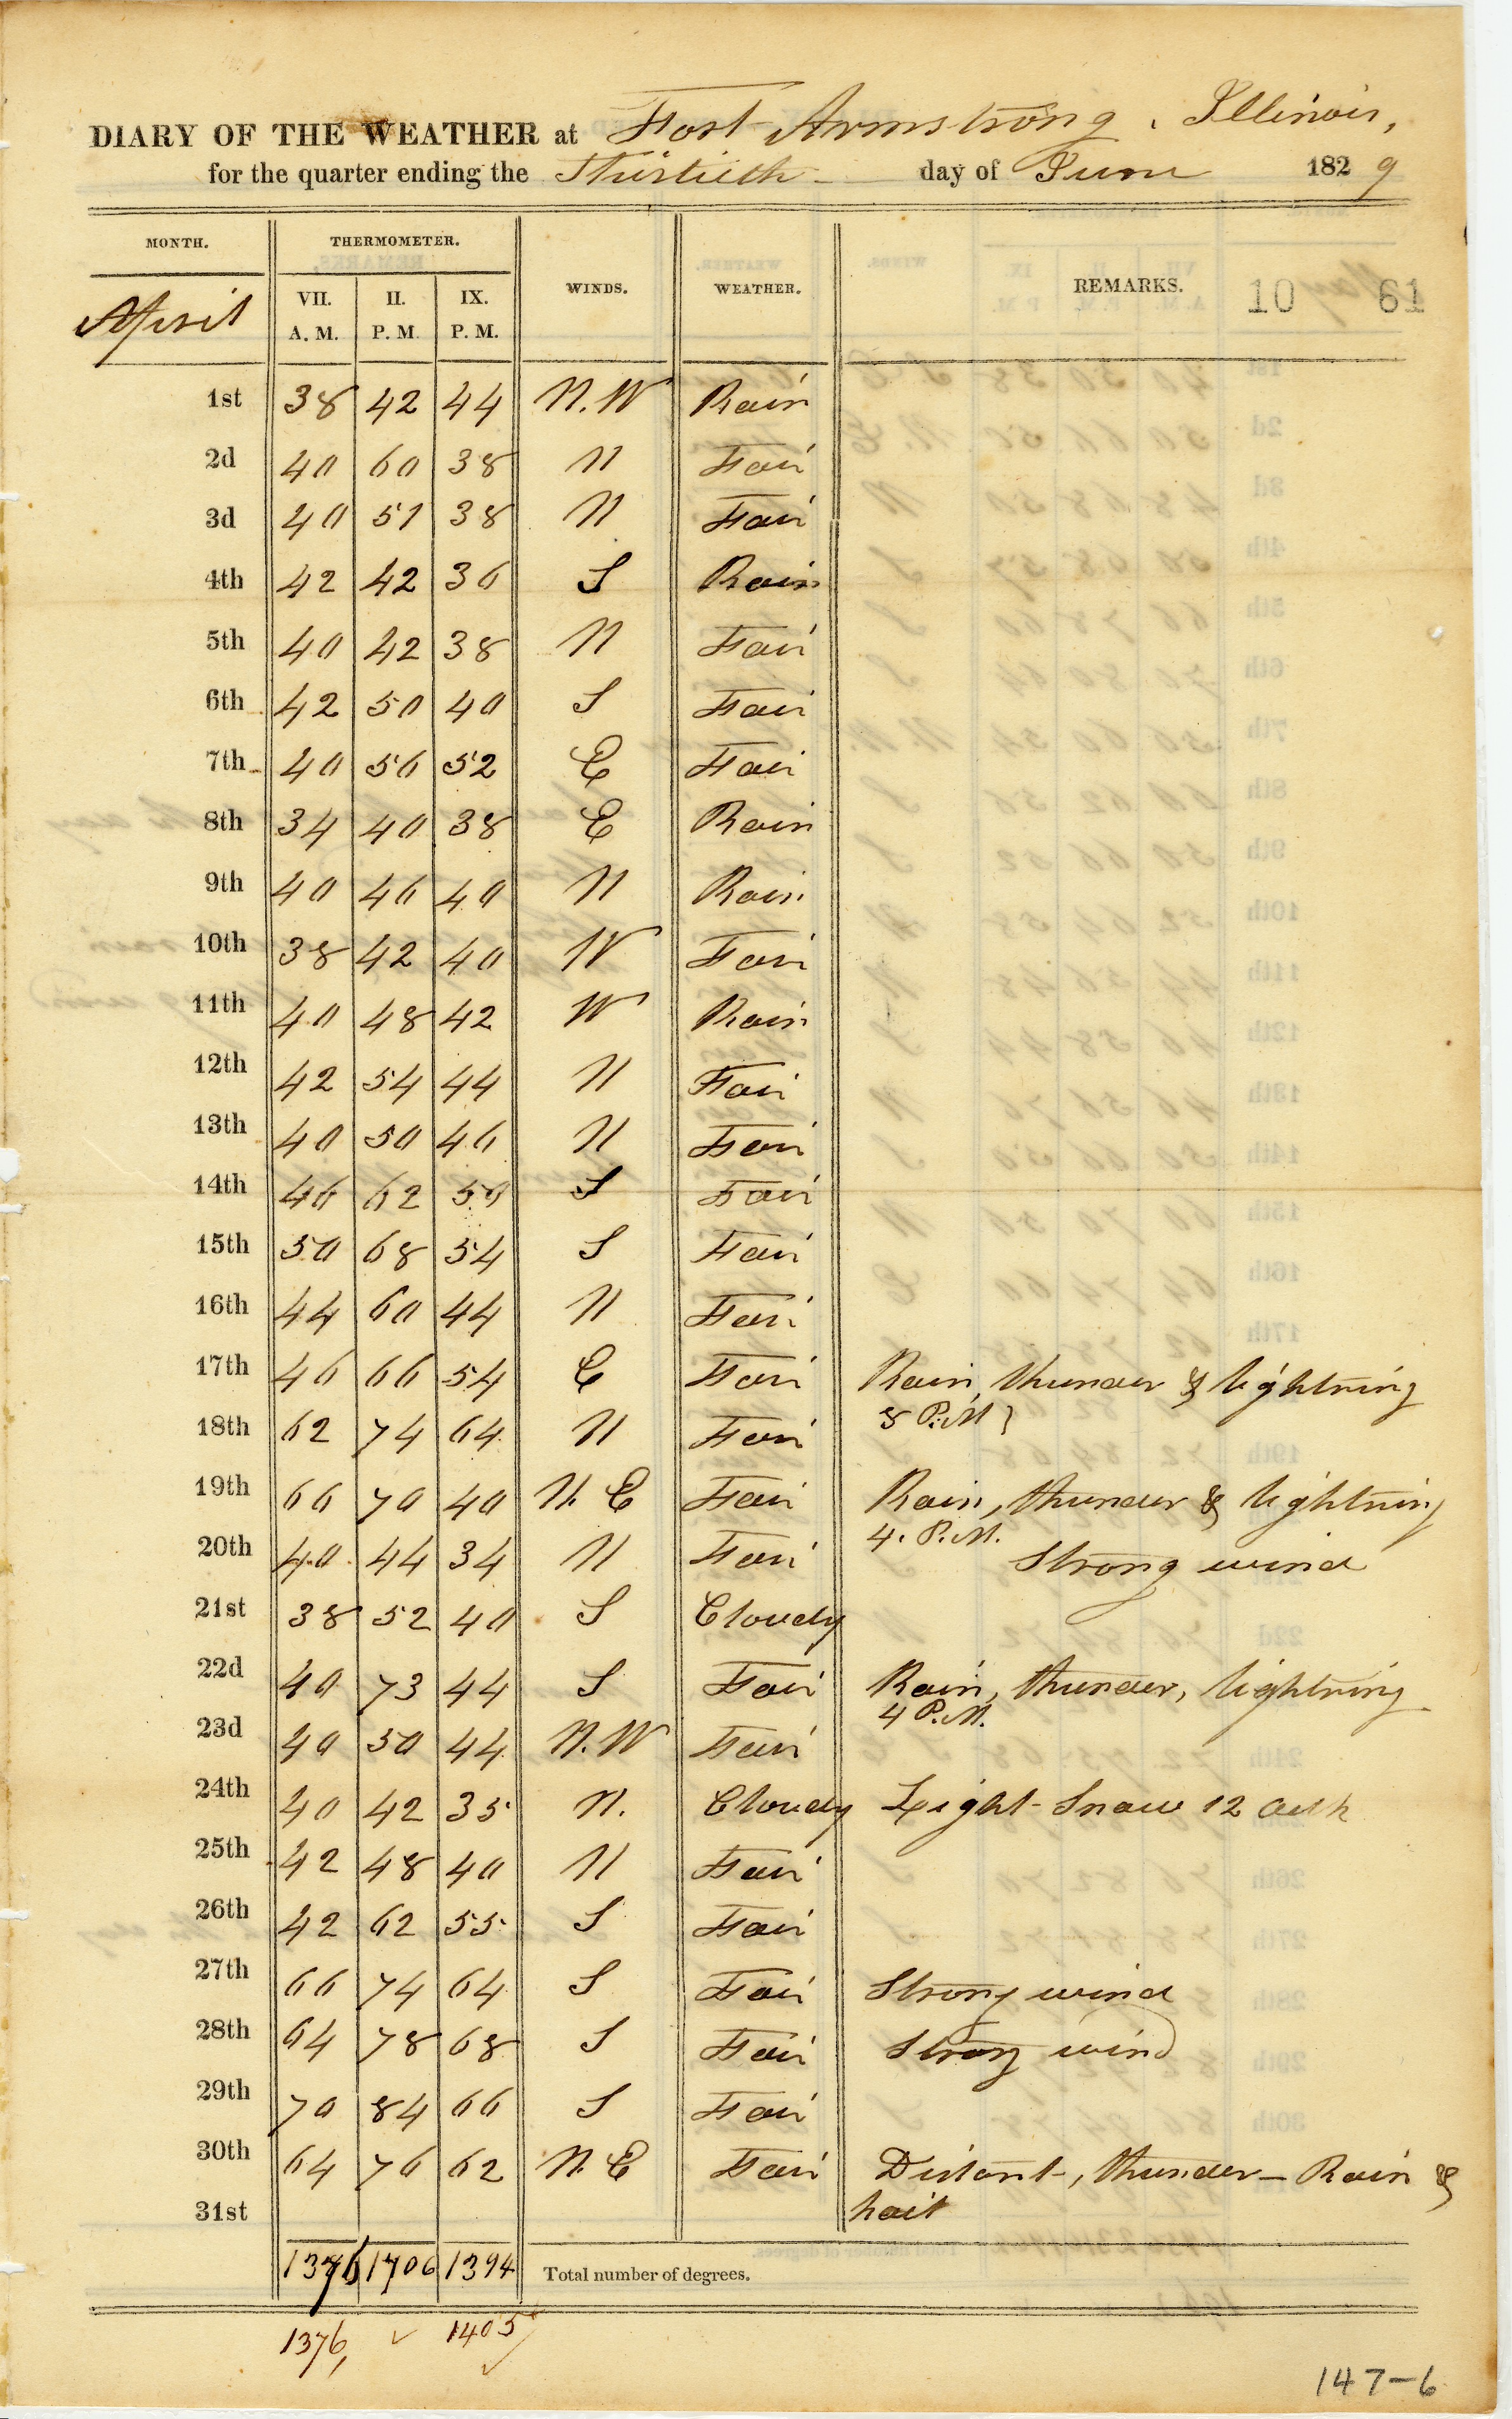 DIARY OF THE WEATHER at Fort Armstrong, Illinois,
for the quarter ending the Thirtieth day of June 1829
MONTH. THERMOMETER. WINDS. WEATHER. REMARKS. 10 61
April VII. A. M. II. P. M. IX. P. M.
1st 38 42 44 N.W Rain
2d 40 60 38 N Fair
3d 40 51 38 N Fair
4th 42 42 36 S Rain
5th 40 42 38 N Fair
6th 42 50 40 S Fair
7th 40 56 52 E Fair
8th 34 40 38 E Rain
9th 40 46 40 N Rain
10th 38 42 40 W Fair
11th 40 48 42 W Rain
12th 42 54 44 N Fair
13th 40 50 46 N Fair
14th 46 62 50 S Fair
15th 50 68 54 S Fair
16th 44 60 44 N Fair
17th 46 66 54 E Fair Rain, thunder & lightning
8 P.M
18th 62 74 64 N Fair
19th 66 70 40 N. E Fair Rain, thunder & lightning
4. P.M.
20th 40 44 34 N Fair Strong wind
21st 38 52 40 S Cloudy
22d 40 73 44 S Fair Rain, thunder, lightning
4 P.M.
23d 40 50 44 N.W Fair
24th 40 42 35 N. Cloudy Light Snow 12
25th 42 48 40 N Fair
26th 42 62 55 S Fair
27th 66 74 64 S Fair Strong wind
28th 64 78 68 S Fair Strong wind
29th 70 84 66 S Fair
30th 64 76 62 N. E Fair Distant, thunder - Rain &
31st hail
1376 1706 1394 Total number of degrees.
1376, 1405
147-6